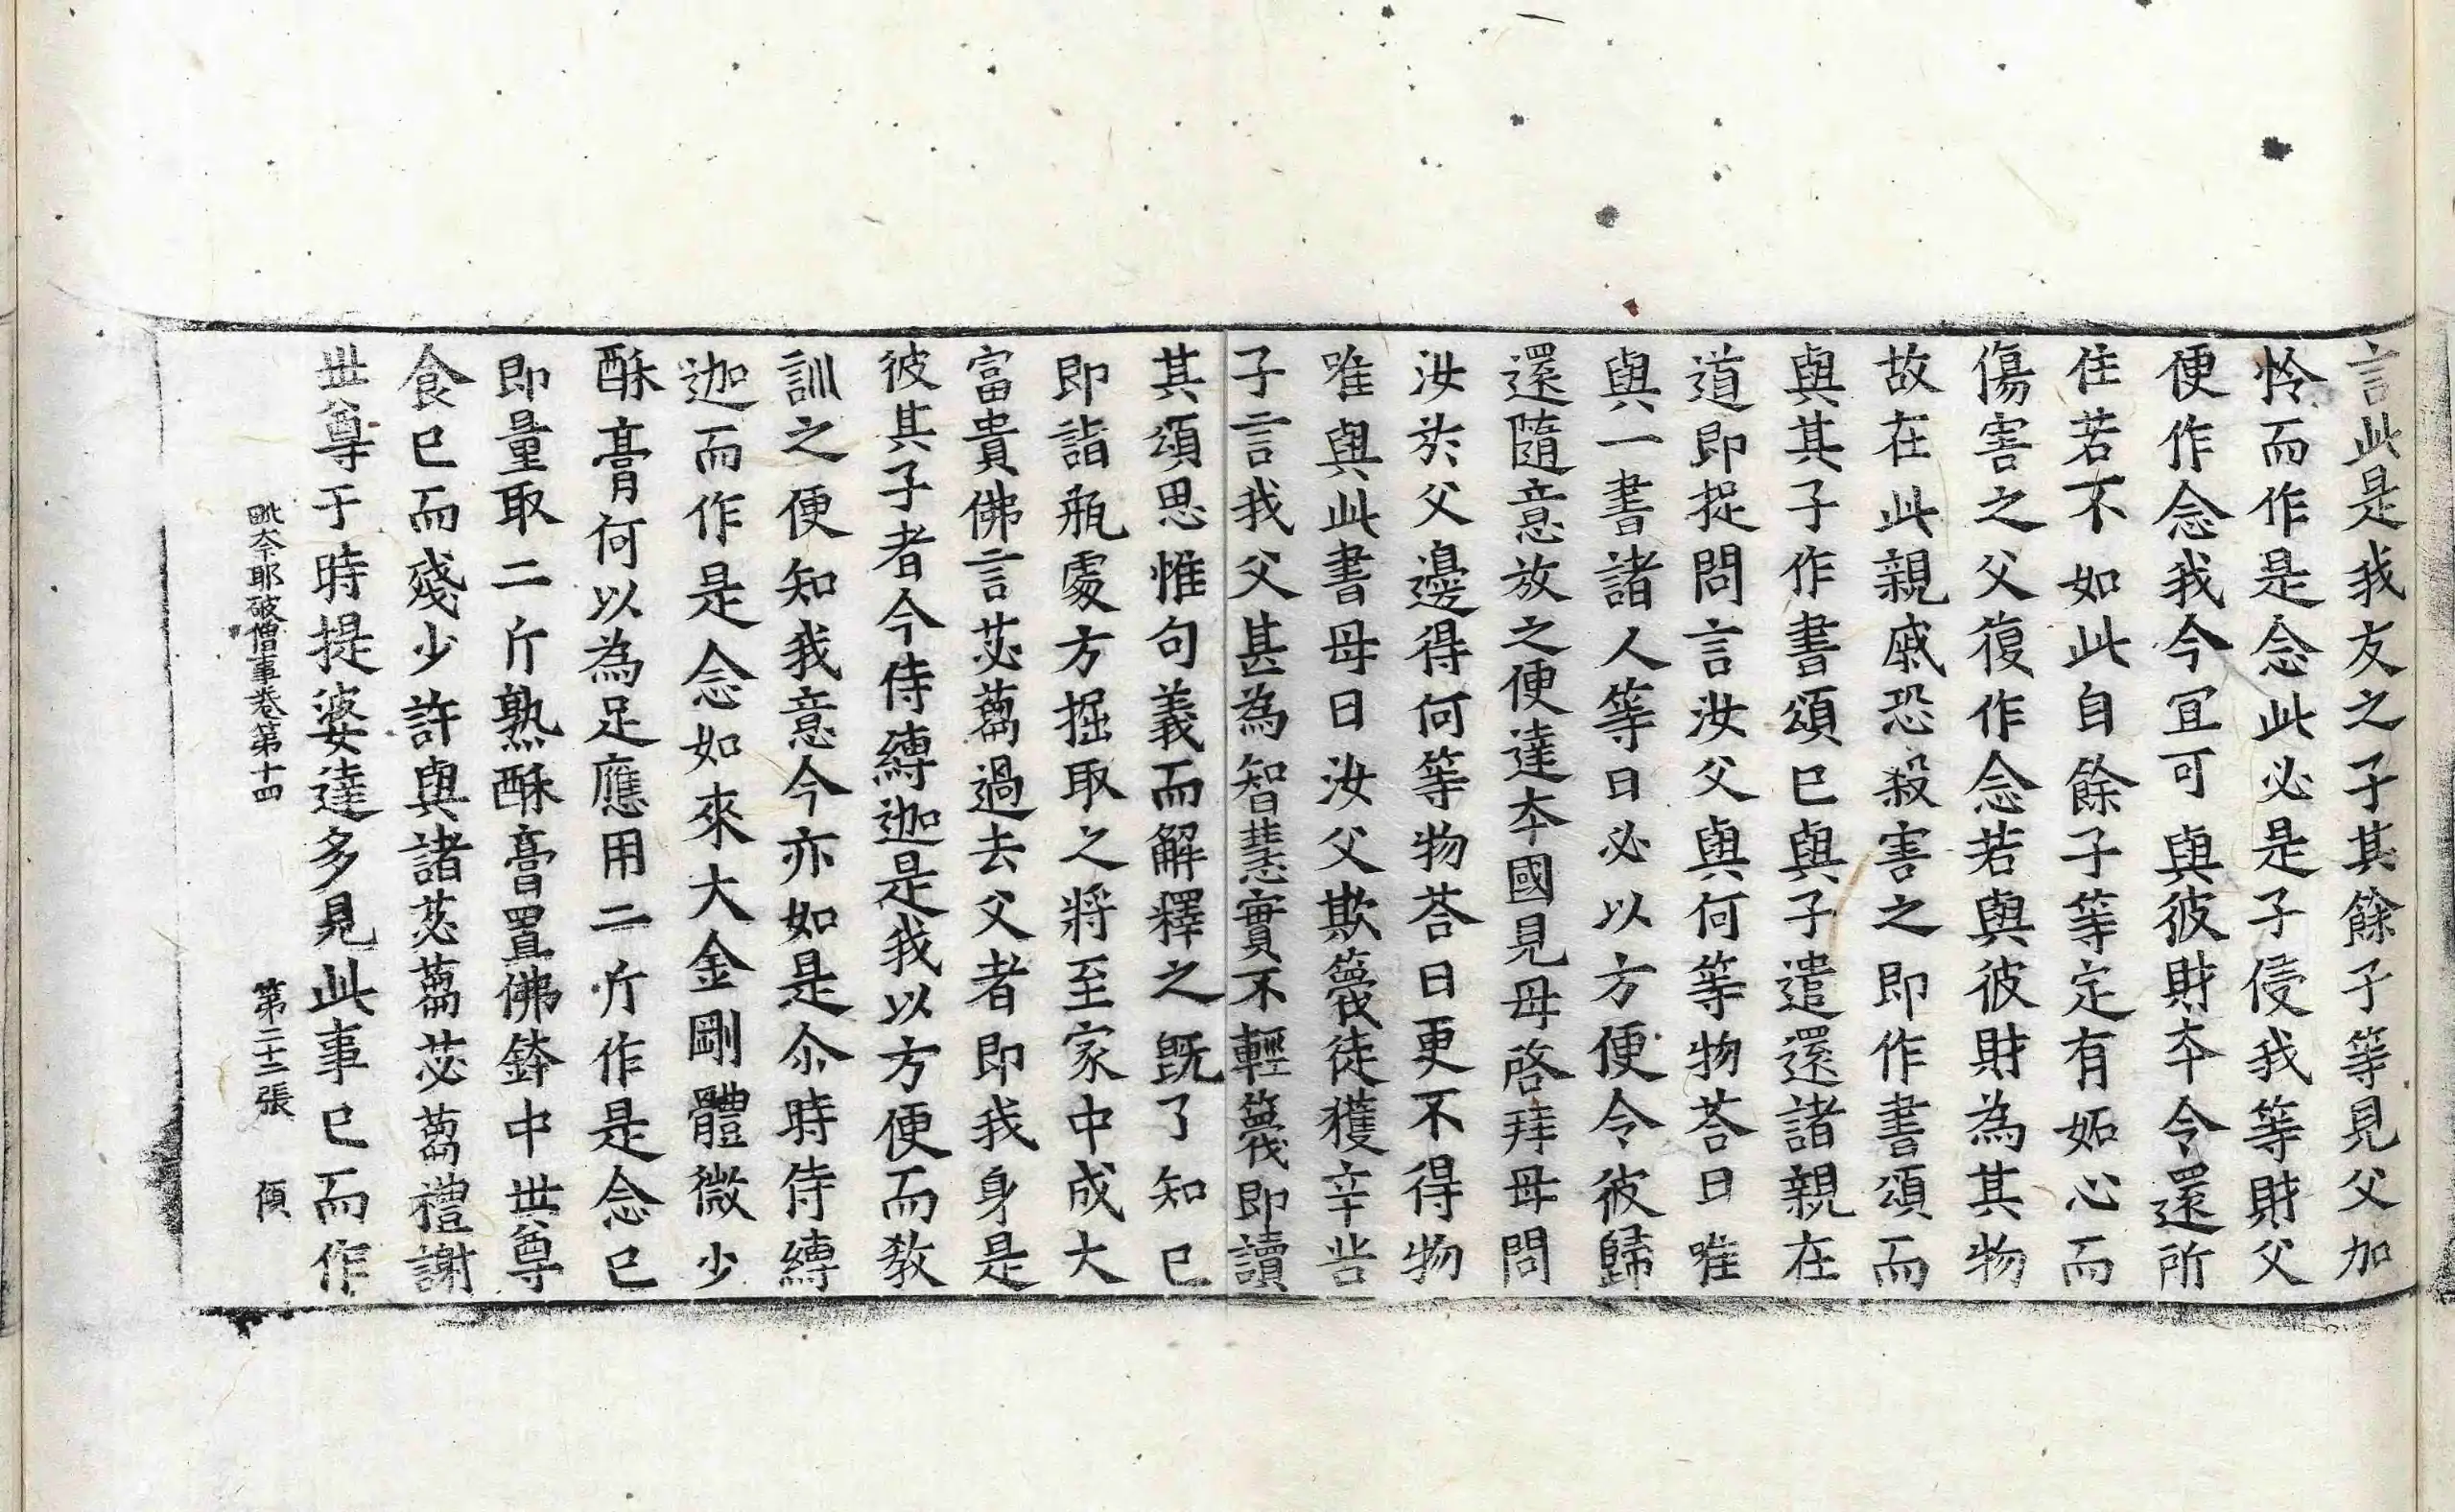 言此是我友之子其餘子等見父加
怜而作是念此必是子侵我等財父
便作念我今冝可與彼財夲令還所
住若不如此自餘子等定有妬心而
傷害之父復作念若與彼財為其物
故在此親戚恐殺害之即作書頌而
與其子作書頌已與子遣還諸親在
道即捉問言汝父與何等物荅曰唯
與一書諸人等曰必以方便令彼歸
還隨意放之便達夲國見母啓拜母問
汝於父邊得何等物荅曰更不得物
唯與此書母曰汝父欺蔑徒獲辛苦
子言我父甚為智慧實不輕蔑即讀
其頌思惟句義而解釋之旣了知已
即詣瓶處方掘取之將至家中成大
富貴佛言苾蒭過去父者即我身是
彼其子者今侍縛迦是我以方便而教
訓之便知我意今亦如是尒時侍縛
迦而作是念如來大金剛體微少
酥膏何以為足應用二斤作是念已
即量取二斤熟酥膏置佛鉢中世尊
食已而殘少許與諸苾蒭苾蒭禮謝
世尊于時提婆達多見此事已而作
毗奈耶破僧事卷第十四 第二十二張 傾